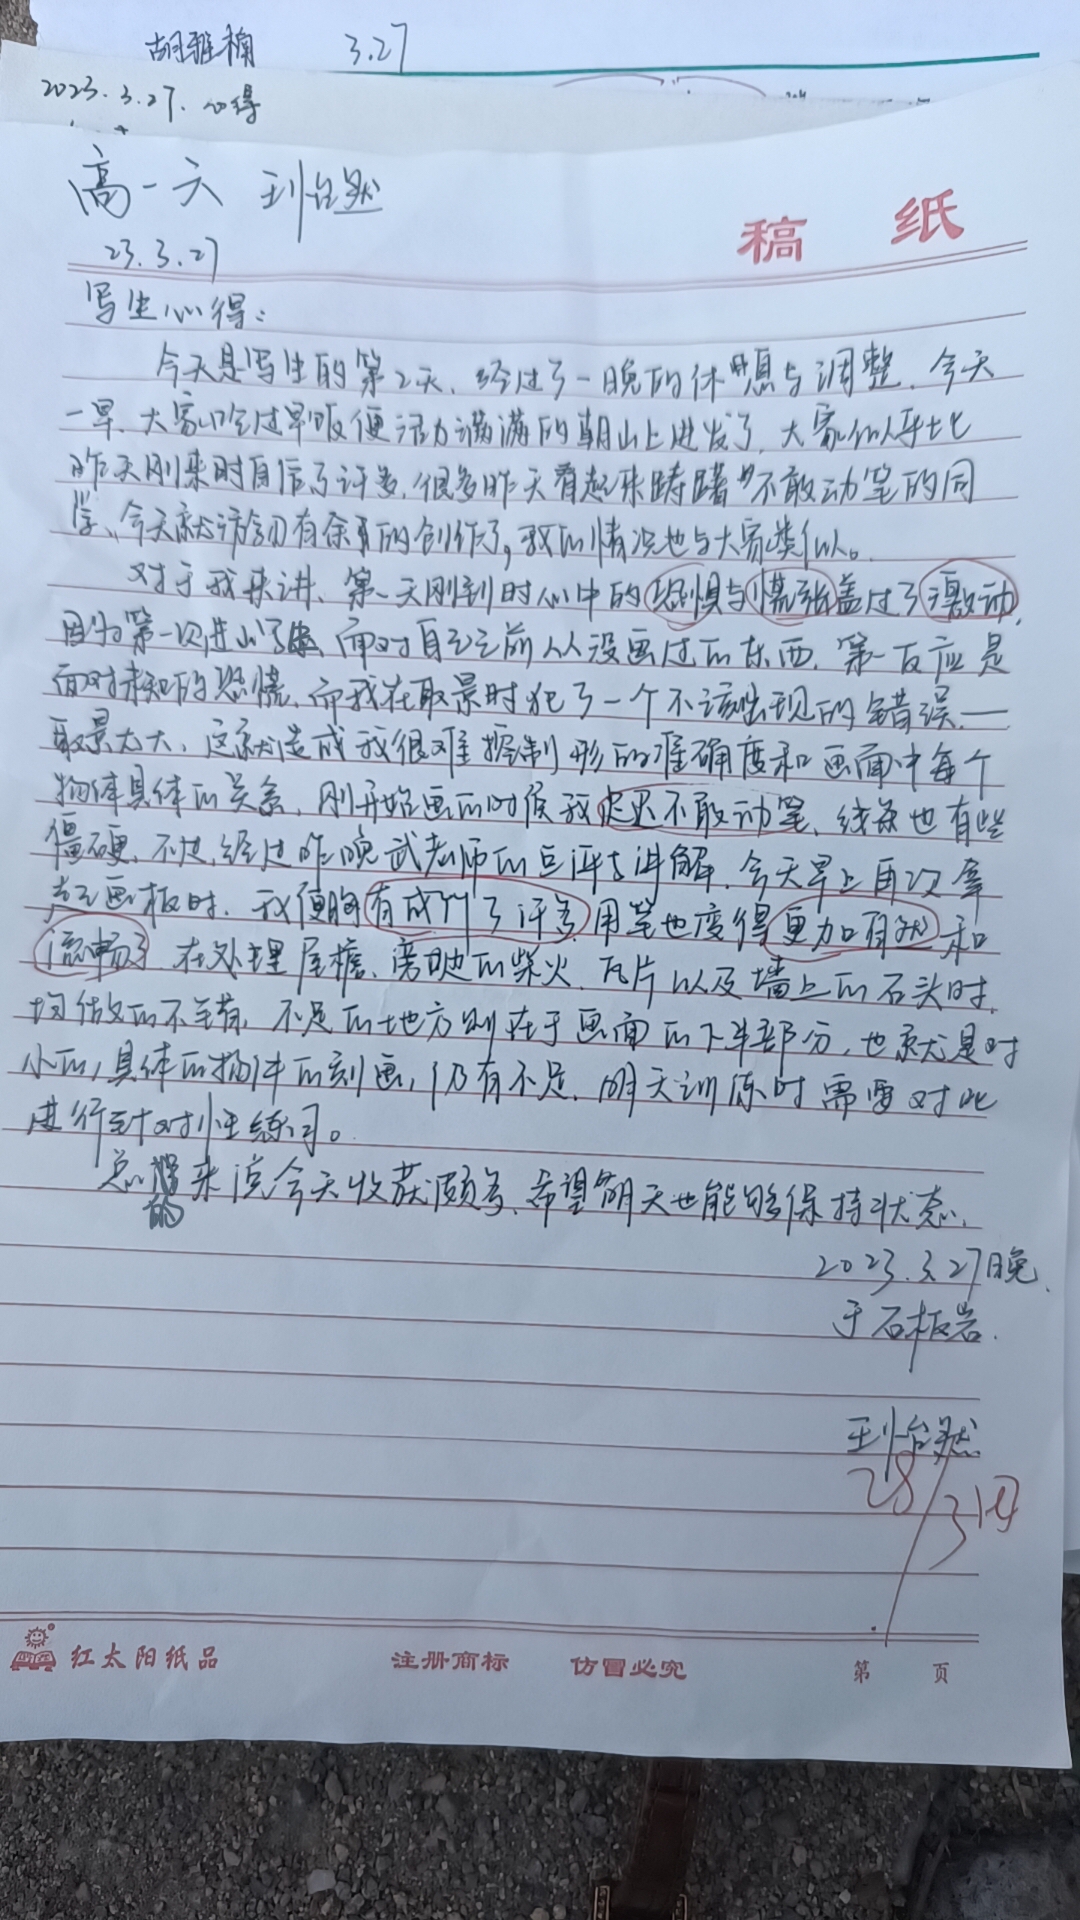 胡雅楠 3.27
2023.3.27. 心得
高一六 刘怡然
稿 纸
23.3.27
写生心得：
今天是写生的第2天、经过了一晚的休息与调整、今天
一早、大家吃过早饭便活力满满的朝山上进发了、大家似乎比
昨天刚来时自信了许多、很多昨天看起来踌躇不敢动笔的同
学、今天就游刃有余的创作了，我的情况也与大家类似。
对于我来讲、第一天刚到时心中的恐惧与慌张盖过了激动、
因为第一次进山写生、面对自己之前从没画过的东西、第一反应是
面对未知的恐慌、而我在取景时犯了一个不该出现的错误、——
取景太大、这就造成我很难控制形的准确度和画面中每个
物体具体的关系、刚开始画的时候我迟迟不敢动笔、线条也有些
僵硬、不过、经过昨晚武老师的点评与讲解、今天早上再次拿
起画板时、我便胸有成竹了许多、用笔也变得更加自然和
流畅了、在处理屋檐、旁边的柴火、瓦片以及墙上的石头时、
均做的不错、不足的地方则在于画面的下半部分、也就是对
小的，具体的物件的刻画，仍有不足、明天训练时需要对此
进行针对性练习。
总的来说今天收获颇多、希望明天也能够保持状态、
2023.3.27晚、
于石板岩.
刘怡然
28/3阅
红太阳纸品 注册商标 仿冒必究 第 页